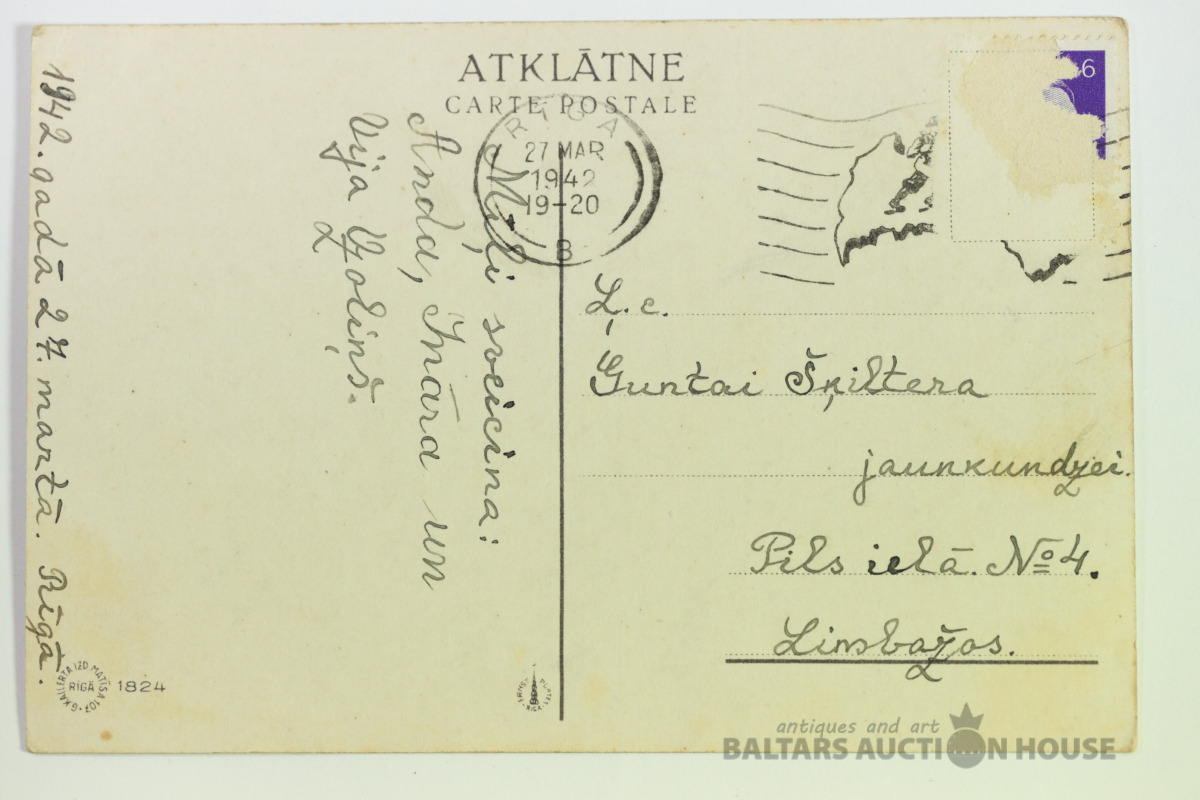 ATKLĀTNE
CARTE POSTALE
RIGA
27 MAR
1942
19-20
8
6
1942. gadā 27. martā. Rīgā.
Mīļi sveicina:
Anda, Ināra un
Vija Ozoliņš.
Ļ. c.
Guntai Šķiltera
jaunkundzei.
Pils ielā. No 4.
Limbažos.
RĪGĀ
1824
antiques and art
BALTARS AUCTION HOUSE